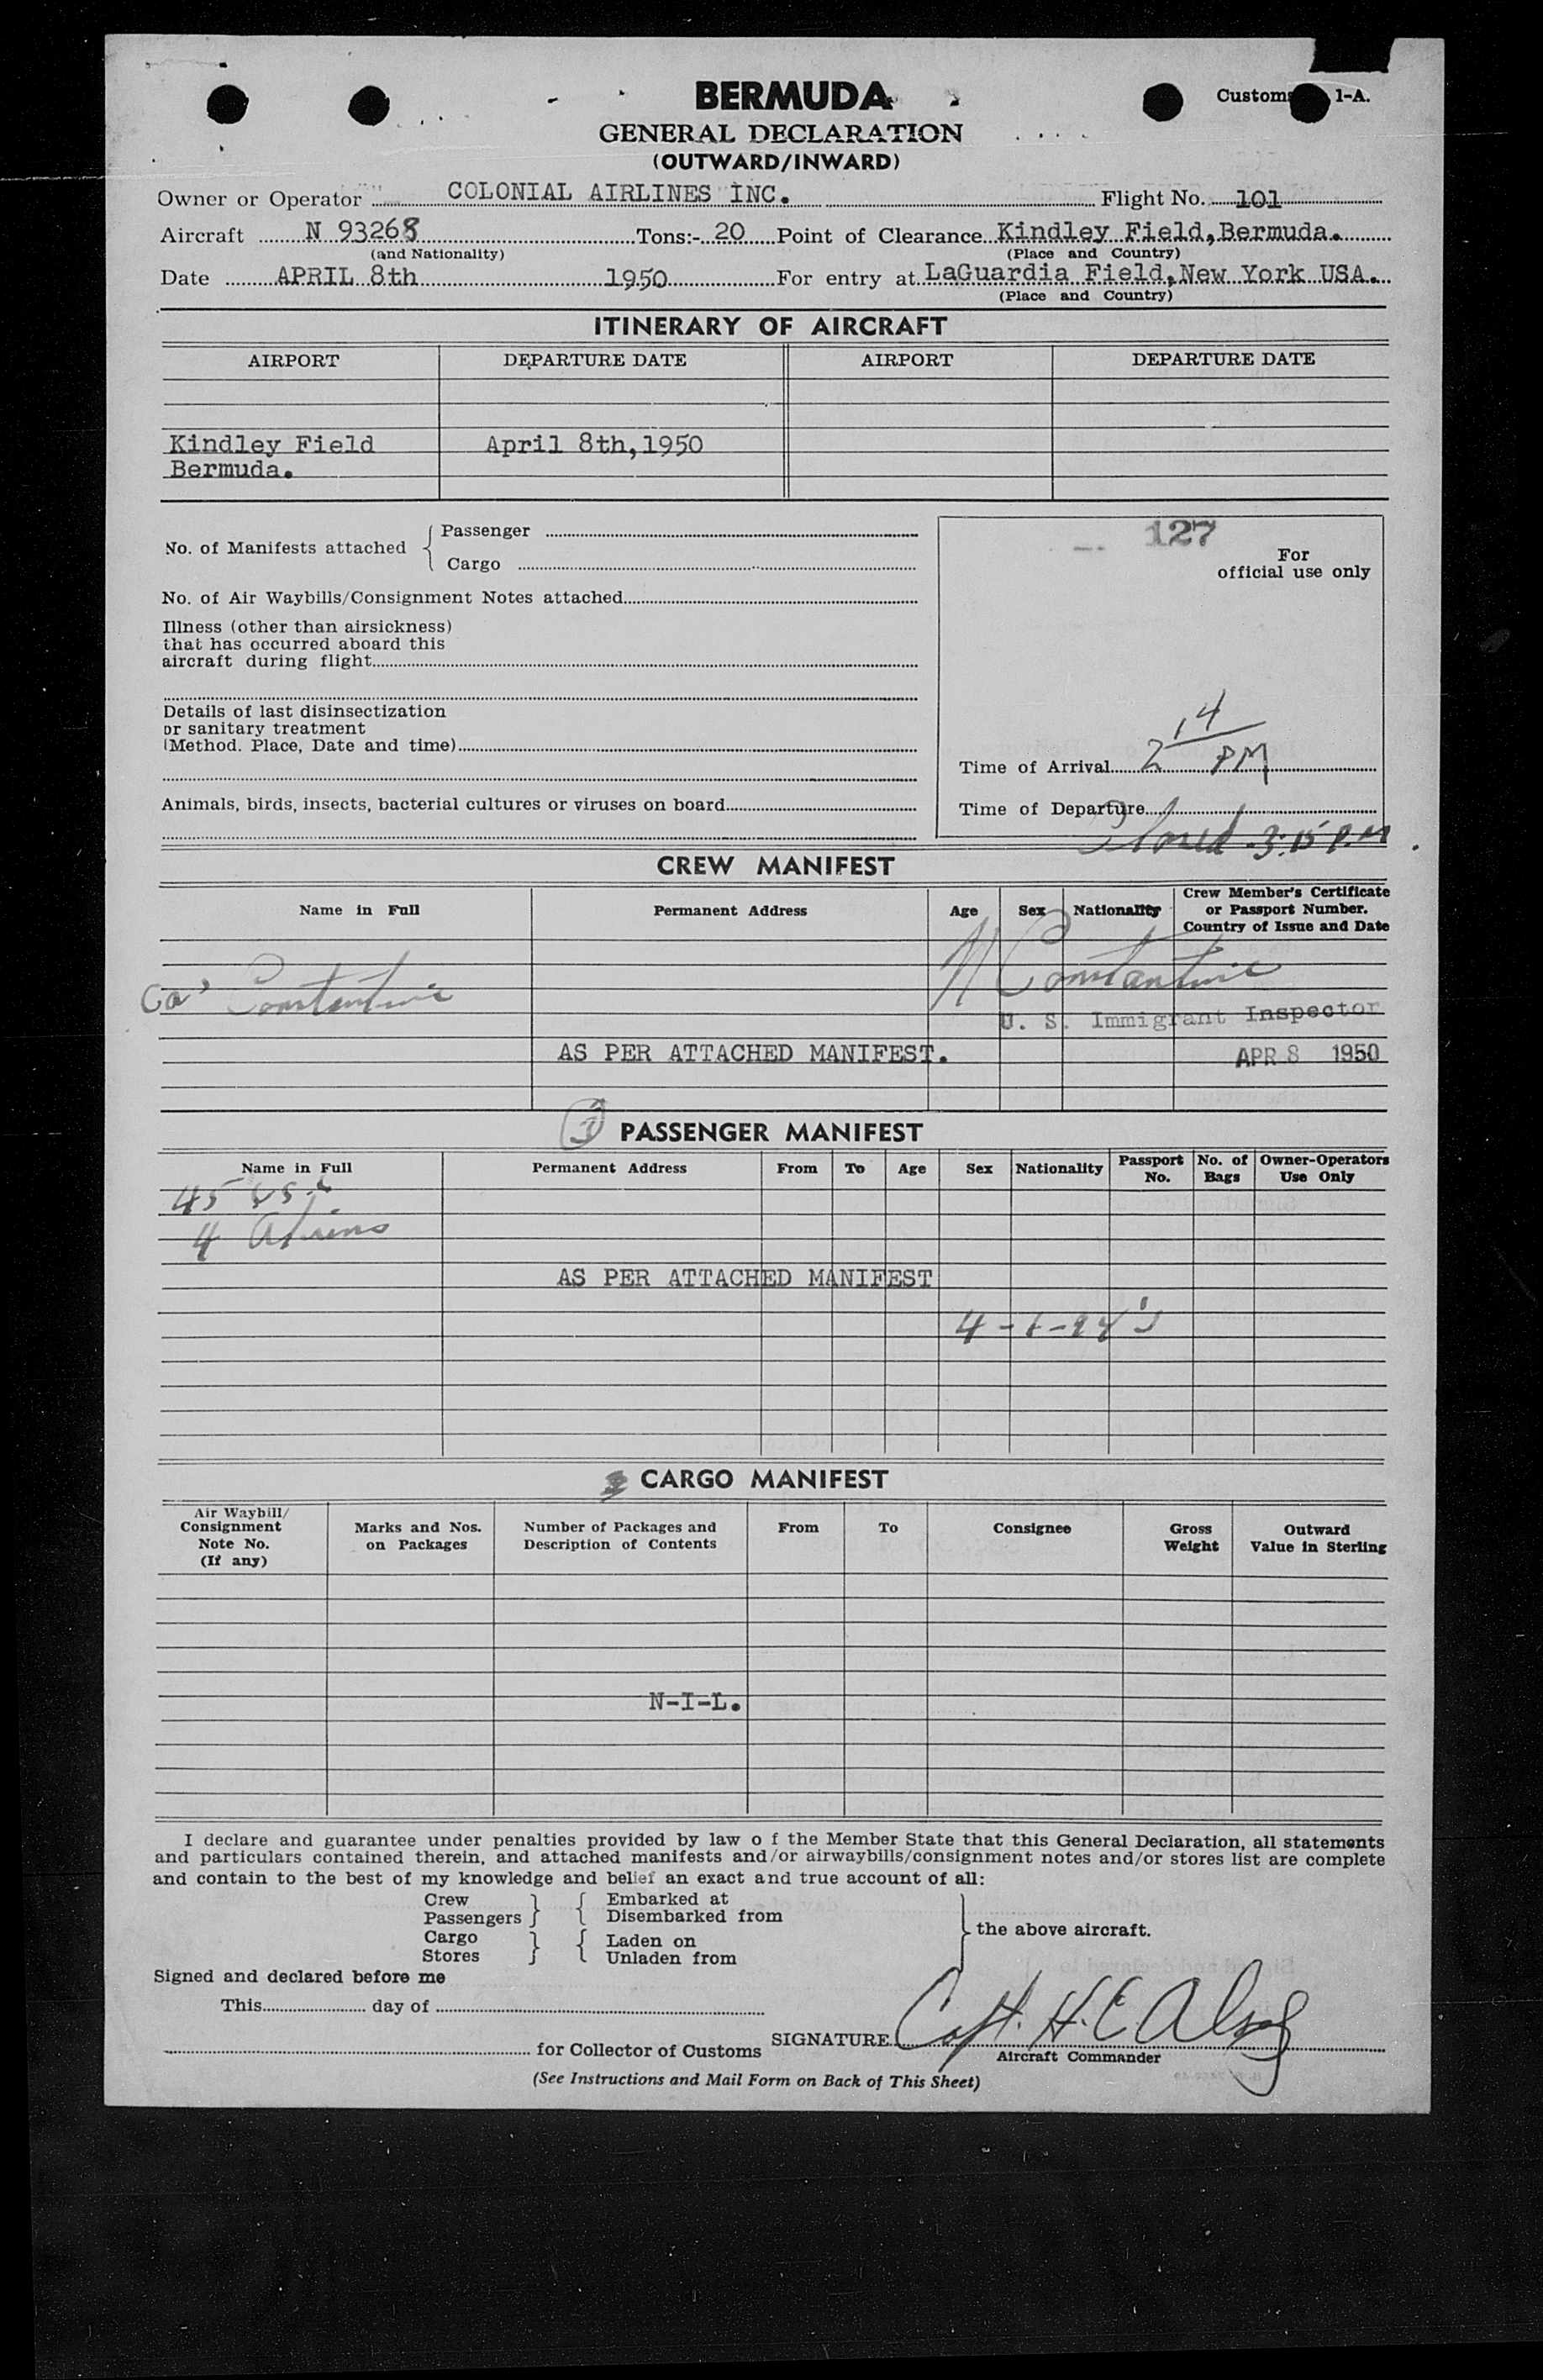 BERMUDA
Customs 1-A.
GENERAL DECLARATION
(OUTWARD/INWARD)
Owner or Operator COLONIAL AIRLINES INC. Flight No. 101
Aircraft N 93268 Tons:- 20 Point of Clearance Kindley Field, Bermuda.
(and Nationality) (Place and Country)
Date APRIL 8th 1950 For entry at LaGuardia Field, New York USA.
(Place and Country)
ITINERARY OF AIRCRAFT
AIRPORT DEPARTURE DATE AIRPORT DEPARTURE DATE
Kindley Field April 8th, 1950
Bermuda.
127
For
official use only
No. of Manifests attached { Passenger
Cargo
No. of Air Waybills/Consignment Notes attached
Illness (other than airsickness)
that has occurred aboard this
aircraft during flight
Details of last disinsectization
or sanitary treatment
(Method. Place, Date and time)
Animals, birds, insects, bacterial cultures or viruses on board
Time of Arrival 2 14 PM
Time of Departure
3:15 P.M
CREW MANIFEST
Name in Full Permanent Address Age Sex Nationality Crew Member's Certificate
or Passport Number.
Country of Issue and Date
Constantine
Constantine
U. S. Immigrant Inspector
AS PER ATTACHED MANIFEST. APR 8 1950
PASSENGER MANIFEST
Name in Full Permanent Address From To Age Sex Nationality Passport No. No. of Bags Owner-Operators Use Only
45
4 Aliens
AS PER ATTACHED MANIFEST
CARGO MANIFEST
Air Waybill/
Consignment
Note No.
(If any)
Marks and Nos.
on Packages
Number of Packages and
Description of Contents
From To Consignee
Gross
Weight
Outward
Value in Sterling
N-I-L.
I declare and guarantee under penalties provided by law o f the Member State that this General Declaration, all statements
and particulars contained therein, and attached manifests and/or airwaybills/consignment notes and/or stores list are complete
and contain to the best of my knowledge and belief an exact and true account of all:
Crew } { Embarked at
Passengers } { Disembarked from
Cargo } { Laden on
Stores } { Unladen from
} the above aircraft.
Signed and declared before me
This day of
for Collector of Customs SIGNATURE Capt. H. E
Aircraft Commander
(See Instructions and Mail Form on Back of This Sheet)